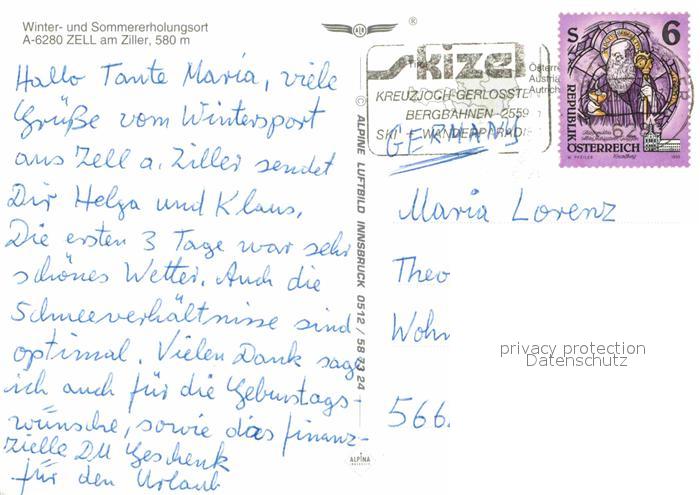 Winter- und Sommererholungsort
A-6280 ZELL am Ziller, 580 m
Hallo Tante Maria, viele
Grüße vom Wintersport
aus Zell a. Ziller sendet
Dir Helga und Klaus.
Die ersten 3 Tage war sehr
schönes Wetter. Auch die
Schneeverhältnisse sind
optimal. Vielen Dank sage
ich auch für die Geburtstags-
wünsche, sowie das finanz-
zielle DM Geschenk
für den Urlaub
© ALPINE LUFTBILD INNSBRUCK 0512 / 58 73 24
ALPINA
®
skizel
KREUZJOCH GERLOSSTE
BERGBAHNEN 2559
SKI WANDERPARADI
Österre
Austria
Autrich
S 6
REPUBLIK
ÖSTERREICH
GERMANY
Maria Lorenz
Theo
Wohn
566
privacy protection
Datenschutz